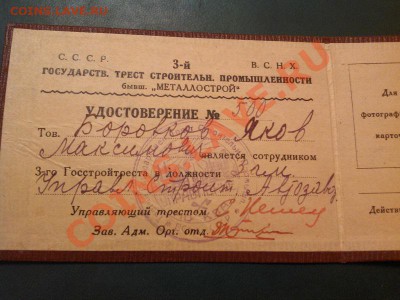 С. С. С. Р. 3-й В. С. Н. Х.
ГОСУДАРСТВ. ТРЕСТ СТРОИТЕЛЬН. ПРОМЫШЛЕННОСТИ
бывш. „МЕТАЛЛОСТРОЙ"
УДОСТОВЕРЕНИЕ № 580
Тов. Боровков Яков
Максимович является сотрудником
3-го Госстройтреста в должности
Управл. Строит. Автозав.
Управляющий трестом
Зав. Адм. Орг. отд.
Для
фотографич
карточ
Действи
COINS.LAVE.RU